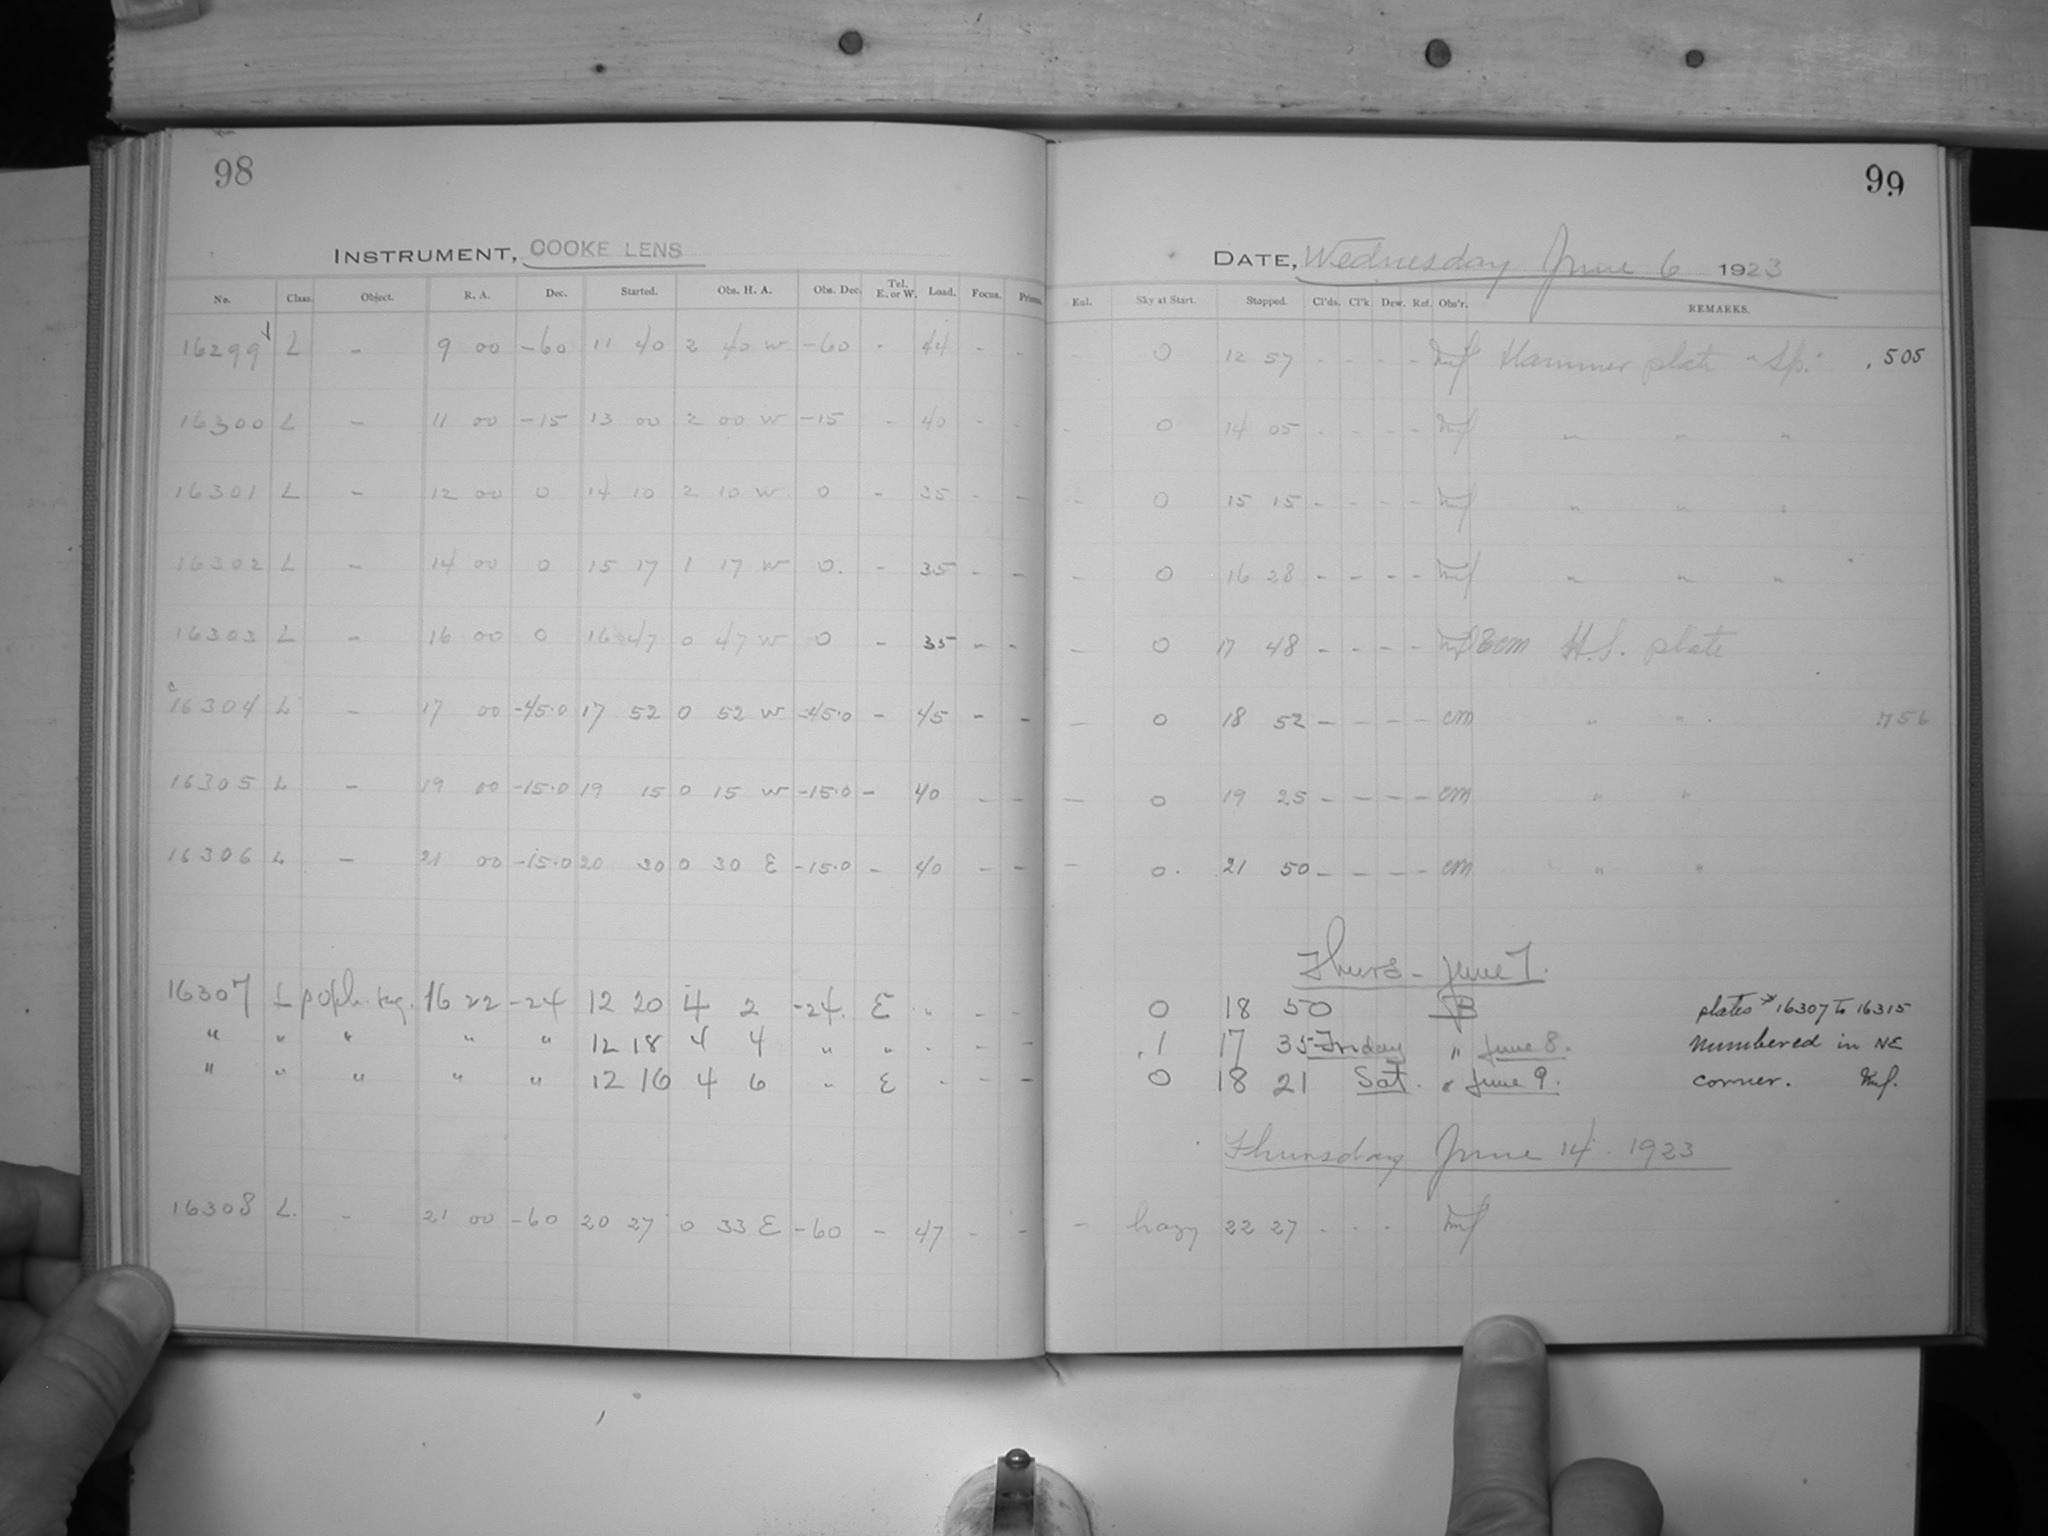 98
INSTRUMENT, COOKE LENS
No. Class. Object. R. A. Dec. Started. Obs. H. A. Obs. Dec. Tel. E. or W. Load. Focus. Prisms.
16299 L - 9 00 -60 11 40 2 40 W -60 - 44 - -
16300 L - 11 00 -15 13 00 2 00 W -15 - 40 - -
16301 L - 12 00 0 14 10 2 10 W 0 - 35 - -
16302 L - 14 00 0 15 17 1 17 W 0. - 35 - -
16303 L - 16 00 0 16 47 0 47 W 0 - 35 - -
16304 L - 17 00 -45.0 17 52 0 52 W -45.0 - 45 - -
16305 L - 19 00 -15.0 19 15 0 15 W -15.0 - 40 - -
16306 L - 21 00 -15.0 20 30 0 30 E -15.0 - 40 - -
16307 L 16 22 -24 12 20 4 2 -24. E - - -
" " " " " 12 18 4 4 " " - - -
" " " " " 12 16 4 6 " E - - -
16308 L. - 21 00 -60 20 27 0 33 E -60 - 47 - -
99
DATE, Wednesday June 6 1923
Eml. Sky at Start. Stopped. Cl'ds. Cl'k Dew. Ref. Obs'r. REMARKS.
- 0 12 57 - - - - Hammer plate "Sp." .505
- 0 14 05 - - - - " " "
- 0 15 15 - - - - " " "
- 0 16 28 - - - - " " "
- 0 17 48 - - - - cm H.S. plate
- 0 18 52 - - - - cm " " .756
- 0 19 25 - - - - cm " "
- 0. 21 50 - - - - cm " "
Thurs - June 7.
0 18 50 B plates # 16307 to 16315
.1 17 35 Friday " June 8. numbered in NE
0 18 21 Sat. " June 9. corner.
Thursday June 14. 1923
- hazy 22 27 - - -